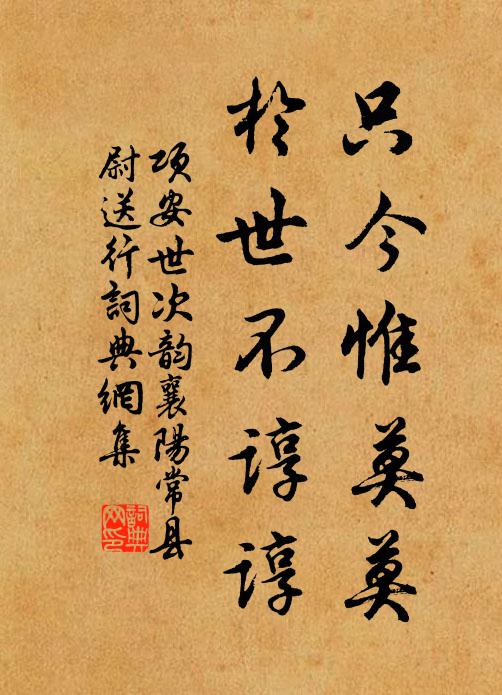 只今惟莫莫
於世不諄諄
项安世次韵襄陽常县
尉送行詞典網集
詞典网印